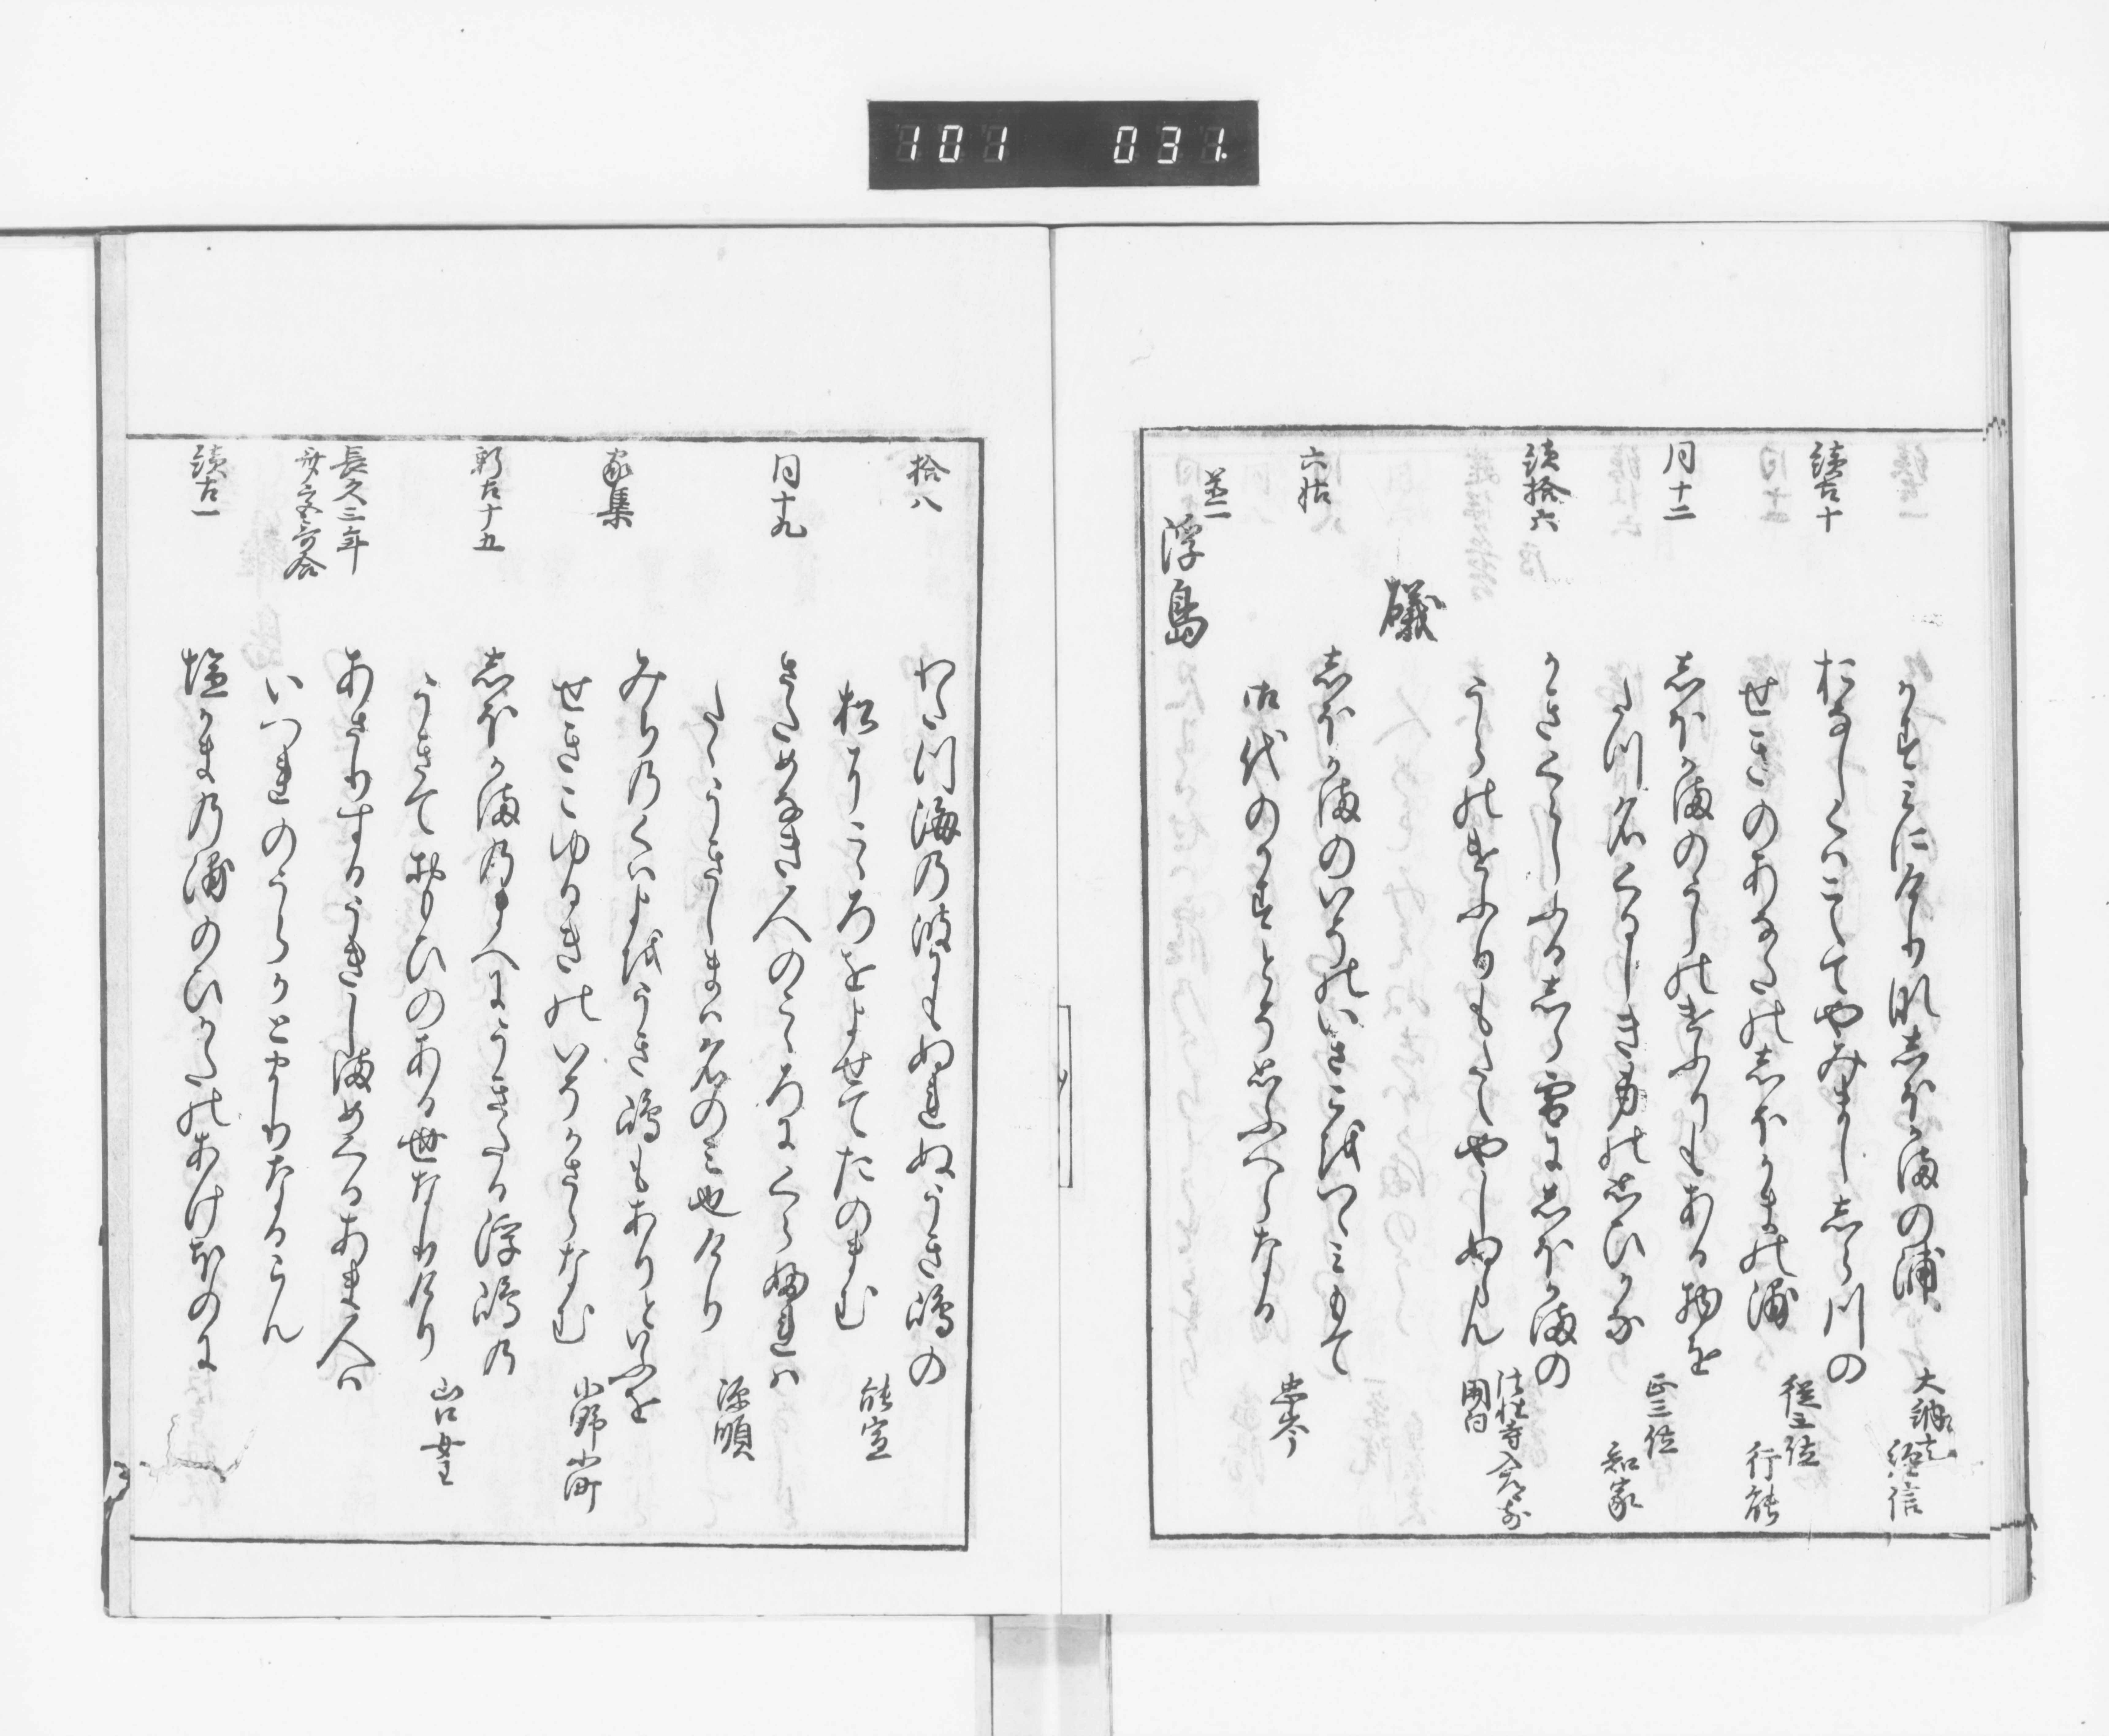 101 031.
かすみにけりなしほかまの浦 大納言経信
続古十 おなしくはこえてやみまし しら川の
せきのあなたのしほかまの浦 従三位行能
同十二 しほかまのうらのけふりもある物を
たつ名くるしき身の思ひかな 正三位知家
続拾六 かきくらしふるしら雪にしほかまの
うらのけふりもたえやしぬらん 法性寺入道前関白
礒
六帖 しほかまのいそのいさこをつゝみもて
御代のかすとそ思ふへらなる 忠岑
浮島
拾八 わたつ海の波にもぬれぬうき嶋の
松にこゝろをよせてたのまむ 能宣
同十九 さためなき人のこゝろにくらふれは
たゝうきしまは名のみ也けり 源順
家集 みちのくはよをうき嶋もありといふを
せきこゆるきのいそかさらなむ 小野小町
新古十五 しほかまのまへにうきたる浮嶋の
うきておもひのある世なりけり 山口女王
長久三年 歌合 あさりするうきしまめくるあま人は
いつれのうらかとまりなるらん
続古一 塩かまの浦のひかたのあけほのに